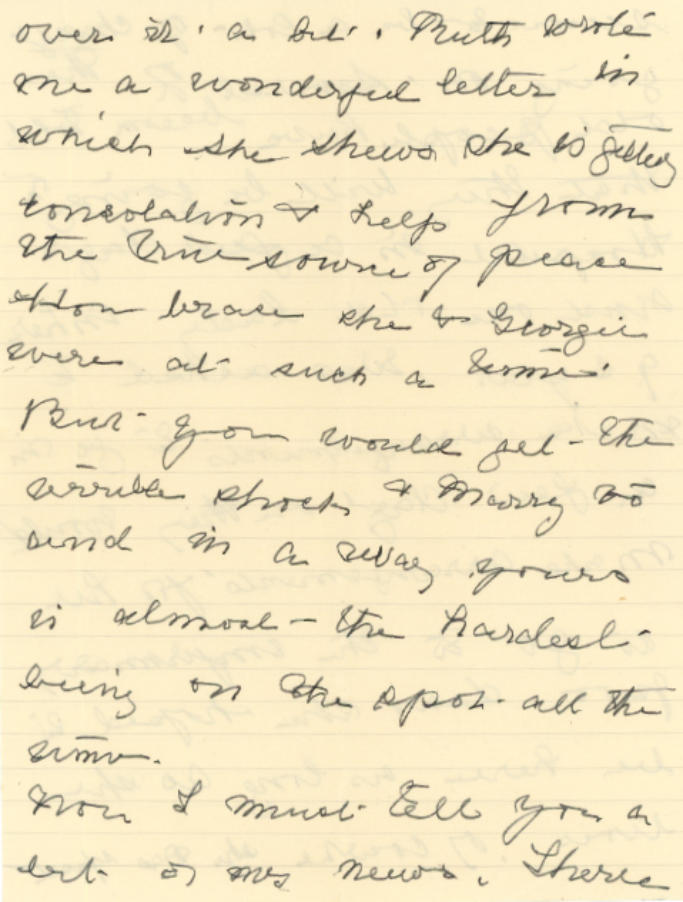 over it a bit. Ruth wrote
me a wonderful letter in
which she shews she is getting
consolation & help from
the true source of peace
How brave she & Georgie
were at such a time.
But you would get the
terrible shock & Marry to
and in a way yours
is almost the hardest
being on the spot all the
time.
Now I must tell you a
bit of my news. There